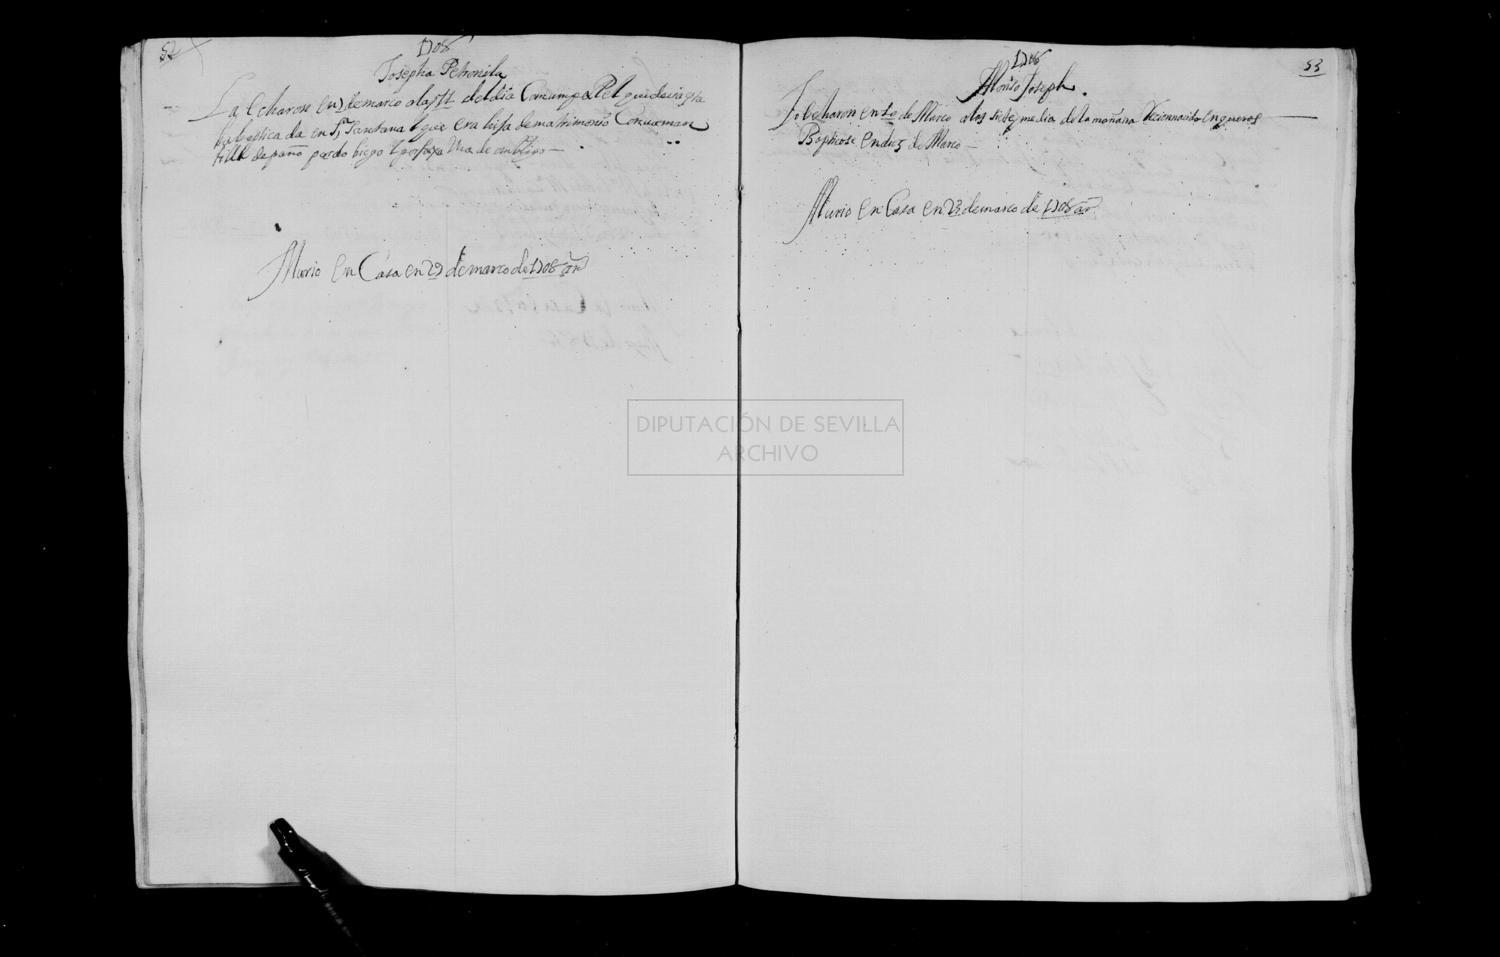 52
1708
Josepha Petronila
La Echaron en 7 de marco a las 11 del dia Con un papel que decia q esta
bautisada en Sra Santana y que era hija de matrimonio Con una man
tilla de paño pardo biejo y por faxa Una de
Murio En Casa en 29 de marco de 1708 as
53
1708
Alonso Joseph.
Lo echaron en 10 de Marco a las siete y media de la mañana Recien nacido en queros
Baptiçose en dies de Marco
Murio en Casa en 23 de marco de 1708 as
DIPUTACIÓN DE SEVILLA
ARCHIVO